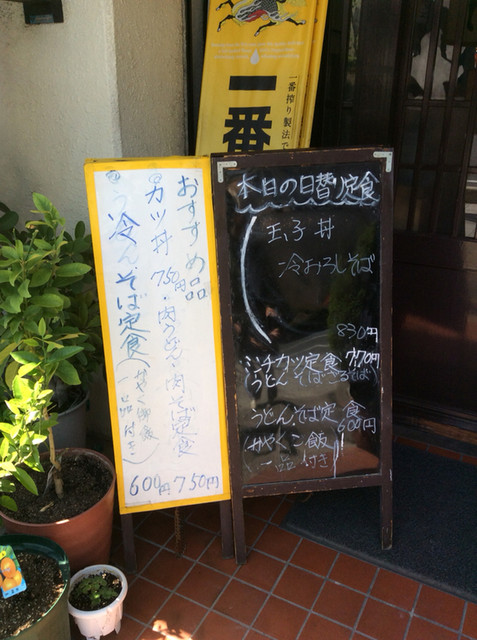 一番
一番搾り製法で
おすすめ品
カツ丼 750円・肉うどん・肉そば定食
冷そば定食(みやく御飯
一品付き)
600円 750円
本日の日替り定食
玉子丼
冷おろしそば
830円
ミンチカツ定食 770円
うどん そば ころそば)
うどん、そば定食
600円
(みやくこ飯
一品付き)